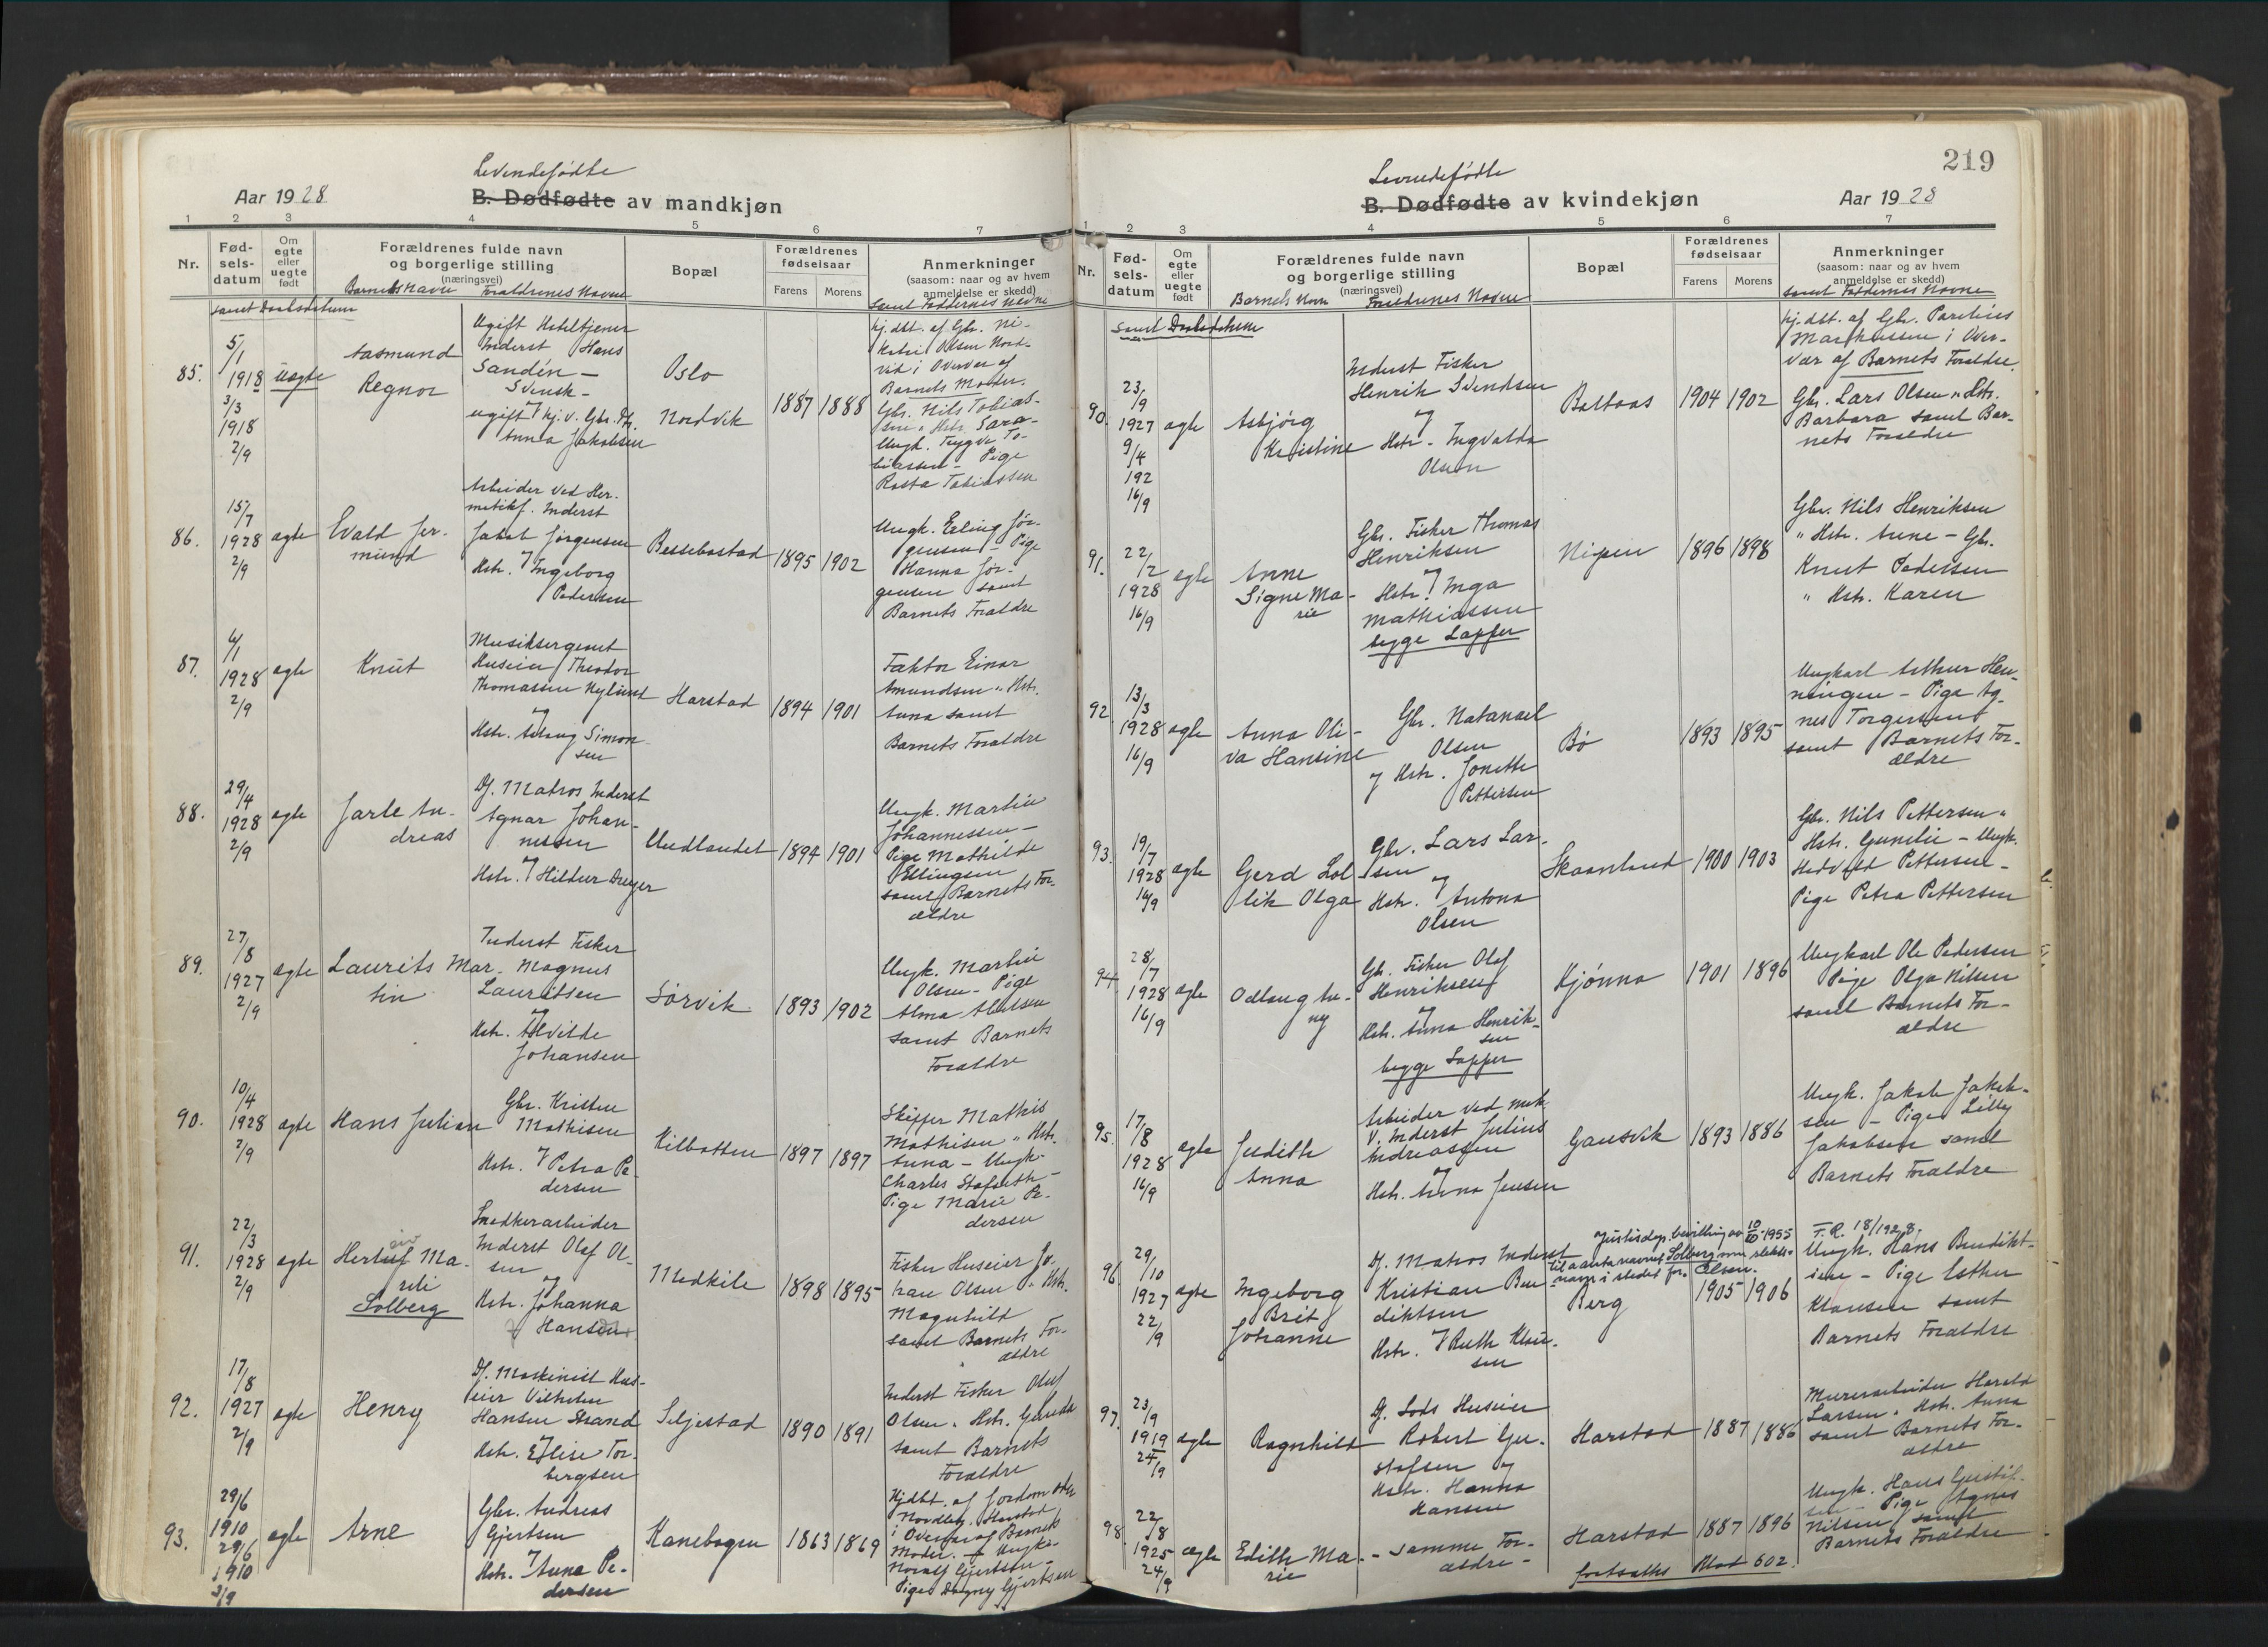 Levendefødte
Aar 1928
B. Dødfødte av mandkjøn
1 2 3 4 5 6 7
Nr.
Fød-
sels-
datum
Om
egte
eller
uegte
født
Forældrenes fulde navn
og borgerlige stilling
(næringsvei)
Barnets Navn Forældrenes Navne
Bopæl
Forældrenes
fødselsaar
Farens Morens
Anmerkninger
(saasom: naar og av hvem
anmeldelse er skedd)
samt Faddernes Navne
samt Daabsdatum
85.
5/1
1918
3/3
1918
2/9
uægte
Aasmund
Regnor
Ugift Hoteltjener
Inderst Hans
Sandén –
Svensk –
ugift
Anna Jakobsen
Oslo
Nordvik
1887 1888
hj.dbt. af Gbr. Ni-
kolai Olsen Nord-
vik i Overvær af
Barnets Moder.
Gbr. Nils Tobias-
sen " Hstr. Sara –
Ungk. Trygve To-
biassen – Pige
Rosta Tobiassen
86.
15/7
1928
2/9
ægte
Evald Jer-
mund
Arbeider ved Her-
metikf. Inderst
Jakob Jørgensen
og
Hstr. Ingeborg
Pedersen
Bessebostad
1895 1902
Ungk. Erling Jør-
gensen – Pige
Hanna Jør-
gensen samt
Barnets Forældre
87.
1928
2/9
ægte
Knut
Musiksergeant
Huseier Theodor
Thomassen Nylund
og
Hstr. Aslaug Simon-
sen
Harstad
1894 1901
Faktor Einar
Amundsen " Hstr.
Anna samt
Barnets Forældre
88.
29/4
1928
2/9
ægte
Jarle An-
dreas
Dj. Matros Inderst
Agnar Johan-
nessen
og
Hstr. Hildur Dreyer
Undlandet
1894 1901
Ungk. Martin
Johannessen –
Pige Mathilde
Ellingsen
samt Barnets For-
ældre
89.
27/8
1927
2/9
ægte
Laurits Mar-
tin
Inderst Fisker
Magnus
Lauritsen
og
Hstr. Alvilde
Johansen
Sørvik
1893 1902
Ungk. Martin
Olsen – Pige
Alma
samt Barnets
Forældre
90.
10/4
1928
2/9
ægte
Hans Julian
Gbr. Kristen
Mathisen
og
Hstr. Petra Pe-
dersen
Kilbotten
1897 1897
Skipper Mathis
Mathisen " Hstr.
Anna – Ungk.
Charles Stafseth –
Pige Marie Pe-
dersen
91.
22/3
1928
2/9
ægte
Herluf Ma-
reli
Solberg
Snedkerarbeider
Inderst Olaf Ol-
sen
og
Hstr. Johanna
Hansen
Medkile
1898 1895
Fisker Huseier Jo-
han Olsen " Hstr.
Magnhild
samt Barnets For-
ældre
92.
17/8
1927
2/9
ægte
Henry
Dj. Maskinist Hus-
eier Vilhelm
Hansen Strand
og
Hstr. Elise Tor-
bergsen
Seljestad
1890 1891
Inderst Fisker Oluf
Olsen " Hstr.
samt Barnets
Forældre
93.
29/6
1910
29/6
1910
2/9
ægte
Arne
Gbr. Andreas
Gjertsen
og
Hstr. Anna Pe-
dersen
Kanebogen
1863 1869
Hjdbt. af Jordmoder
Nordby, Harstad
i Overvær af Barnets
Moder. – Ungk.
Noralf Gjertsen –
Pige Dagny Gjertsen
219
Levendefødte
B. Dødfødte av kvindekjøn
Aar 1928
1 2 3 4 5 6 7
Nr.
Fød-
sels-
datum
Om
egte
eller
uegte
født
Forældrenes fulde navn
og borgerlige stilling
(næringsvei)
Barnets Navn Forældrenes Navne
Bopæl
Forældrenes
fødselsaar
Farens Morens
Anmerkninger
(saasom: naar og av hvem
anmeldelse er skedd)
samt Faddernes Navne
samt Daabsdatum
90.
23/9
1927
9/4
192
16/9
ægte
Asbjørg
Kristine
Inderst Fisker
Henrik Svendsen
og
Hstr. Ingvalda
Olsen
Baltaas
1904 1902
hj.dbt. af Gbr. Parelius
Markussen i Over-
vær af Barnets Forældre.
Gbr. Lars Olsen " Hstr.
Barbara samt Bar-
nets Forældre
91.
22/2
1928
16/9
ægte
Anne
Signe Ma-
rie
Gbr. Fisker Thomas
Henriksen
og
Hstr. Inga
Mathiassen
begge Lapper
Nipen
1896 1898
Gbr. Nils Henriksen
" Hstr. Anne – Gbr.
Knut Pedersen
" Hstr. Karen
92.
13/3
1928
16/9
ægte
Anna Oli-
va Hansine
Gbr. Natanael
Olsen
og Hstr. Jonette
Pettersen
Bø
1893 1895
Ungkarl Arthur Hen-
ningsen – Pige Ag-
nes Torgersen
samt Barnets For-
ældre
93.
19/7
1928
16/9
ægte
Gerd Sol-
lik Olga
Gbr. Lars Lar-
sen
og
Hstr. Antona
Olsen
Skaanland
1900 1903
Gbr. Nils Pettersen "
Hstr. Gunelie – Ungk.
Hedvald Pettersen –
Pige Petra Pettersen
94.
28/7
1928
16/9
ægte
Odlaug An-
ny
Gbr. Fisker Olaf
Henriksen
og
Hstr. Anna Henrik-
sen
begge Lapper
Kjønna
1901 1896
Ungkarl Ole Pedersen
Pige Olga Nilsen
samt Barnets For-
ældre
95.
17/8
1928
16/9
ægte
Judith
Anna
Arbeider ved mek.
V. Inderst Julius
Andreassen
og
Hstr. Anna Jensen
Gausvik
1893 1886
Ungk. Jakob Jakob-
sen – Pige Lilly
Jakobsen samt
Barnets Forældre
96.
29/10
1927
22/9
ægte
Ingeborg
Brit
Johanne
Dj. Matros Inderst
Kristian Ben-
diktsen
og
Hstr. Ruth Klau-
sen
justisdep. bevilling av 10/10-1955
til å anta navnet Solberg som slekts-
navn i stedet for Olsen.
Berg
1905 1906
F.R. 18/1928.
Ungk. Hans Bendikt-
sen – Pige Esther
Klausen samt
Barnets Forældre
97.
23/9
1919
24/9
ægte
Ragnhild
Dj. Lods Huseier
Robert Gu-
stafsen og
Hstr. Hanna
Hansen
Harstad
1887 1886
Murerarbeider Harald
Larsen " Hstr. Anna
samt Barnets For-
ældre
98.
22/8
1925
24/9
ægte
Edith Ma-
rie
– samme For-
ældre –
Harstad
1887 1896
Ungk. Hans Gustaf-
sen – Pige Agnes
Nilsen samt
Barnets Forældre
fortsættes Blad 602.